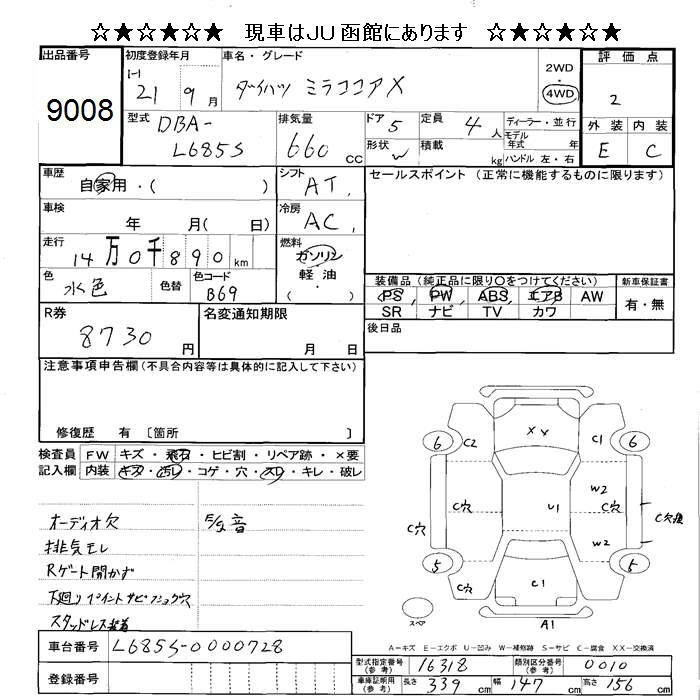 ☆★☆★☆★ 現車はJU函館にあります ☆★☆★☆★
出品番号 9008
初度登録年月 H 21 9月
車名・グレード ダイハツ ミラココアX
2WD 4WD
評価点 2
外装 内装
E C
型式 DBA-L685S
排気量 660 cc
ドア 5
定員 4 人
形状 W
積載 kg
ディーラー・並行
モデル年式 年
ハンドル 左・右
車歴 自家用・( )
シフト AT
車検 年 月( 日)
冷房 AC
走行 14万0千890km
燃料 ガソリン 軽油 ( )
色 水色 色替
色コード B69
セールスポイント (正常に機能するものに限ります)
装備品 (純正品に限り○をつけてください)
PS PW ABS エアB AW
SR ナビ TV カワ
新車保証書 有・無
後日品
R券 8730 円
名変通知期限 月 日
注意事項申告欄 (不具合内容等は具体的に記入して下さい)
修復歴 有 [箇所 ]
検査員記入欄
FW キズ・飛石・ヒビ割・リペア跡・×要
内装 キズ・汚レ・コゲ・穴・スレ・キレ・破レ
オーディオ欠
排気モレ
Rゲート開かず
下廻りペイントサビフショク穴
スタッドレス装着
XX
6 C2 C1 6
C穴 C穴 U1 W2 C穴 C穴後
W2
5 C穴 C1 C穴 5
スペア
A1
A=キズ E=エクボ U=凹み W=補修跡 S=サビ C=腐食 XX=交換済
車台番号 L685S-0000728
登録番号
型式指定番号 (参考) 16318
類別区分番号 (参考) 0010
車庫証明用 (参考) 長さ 339 cm 幅 147 cm 高さ 156 cm